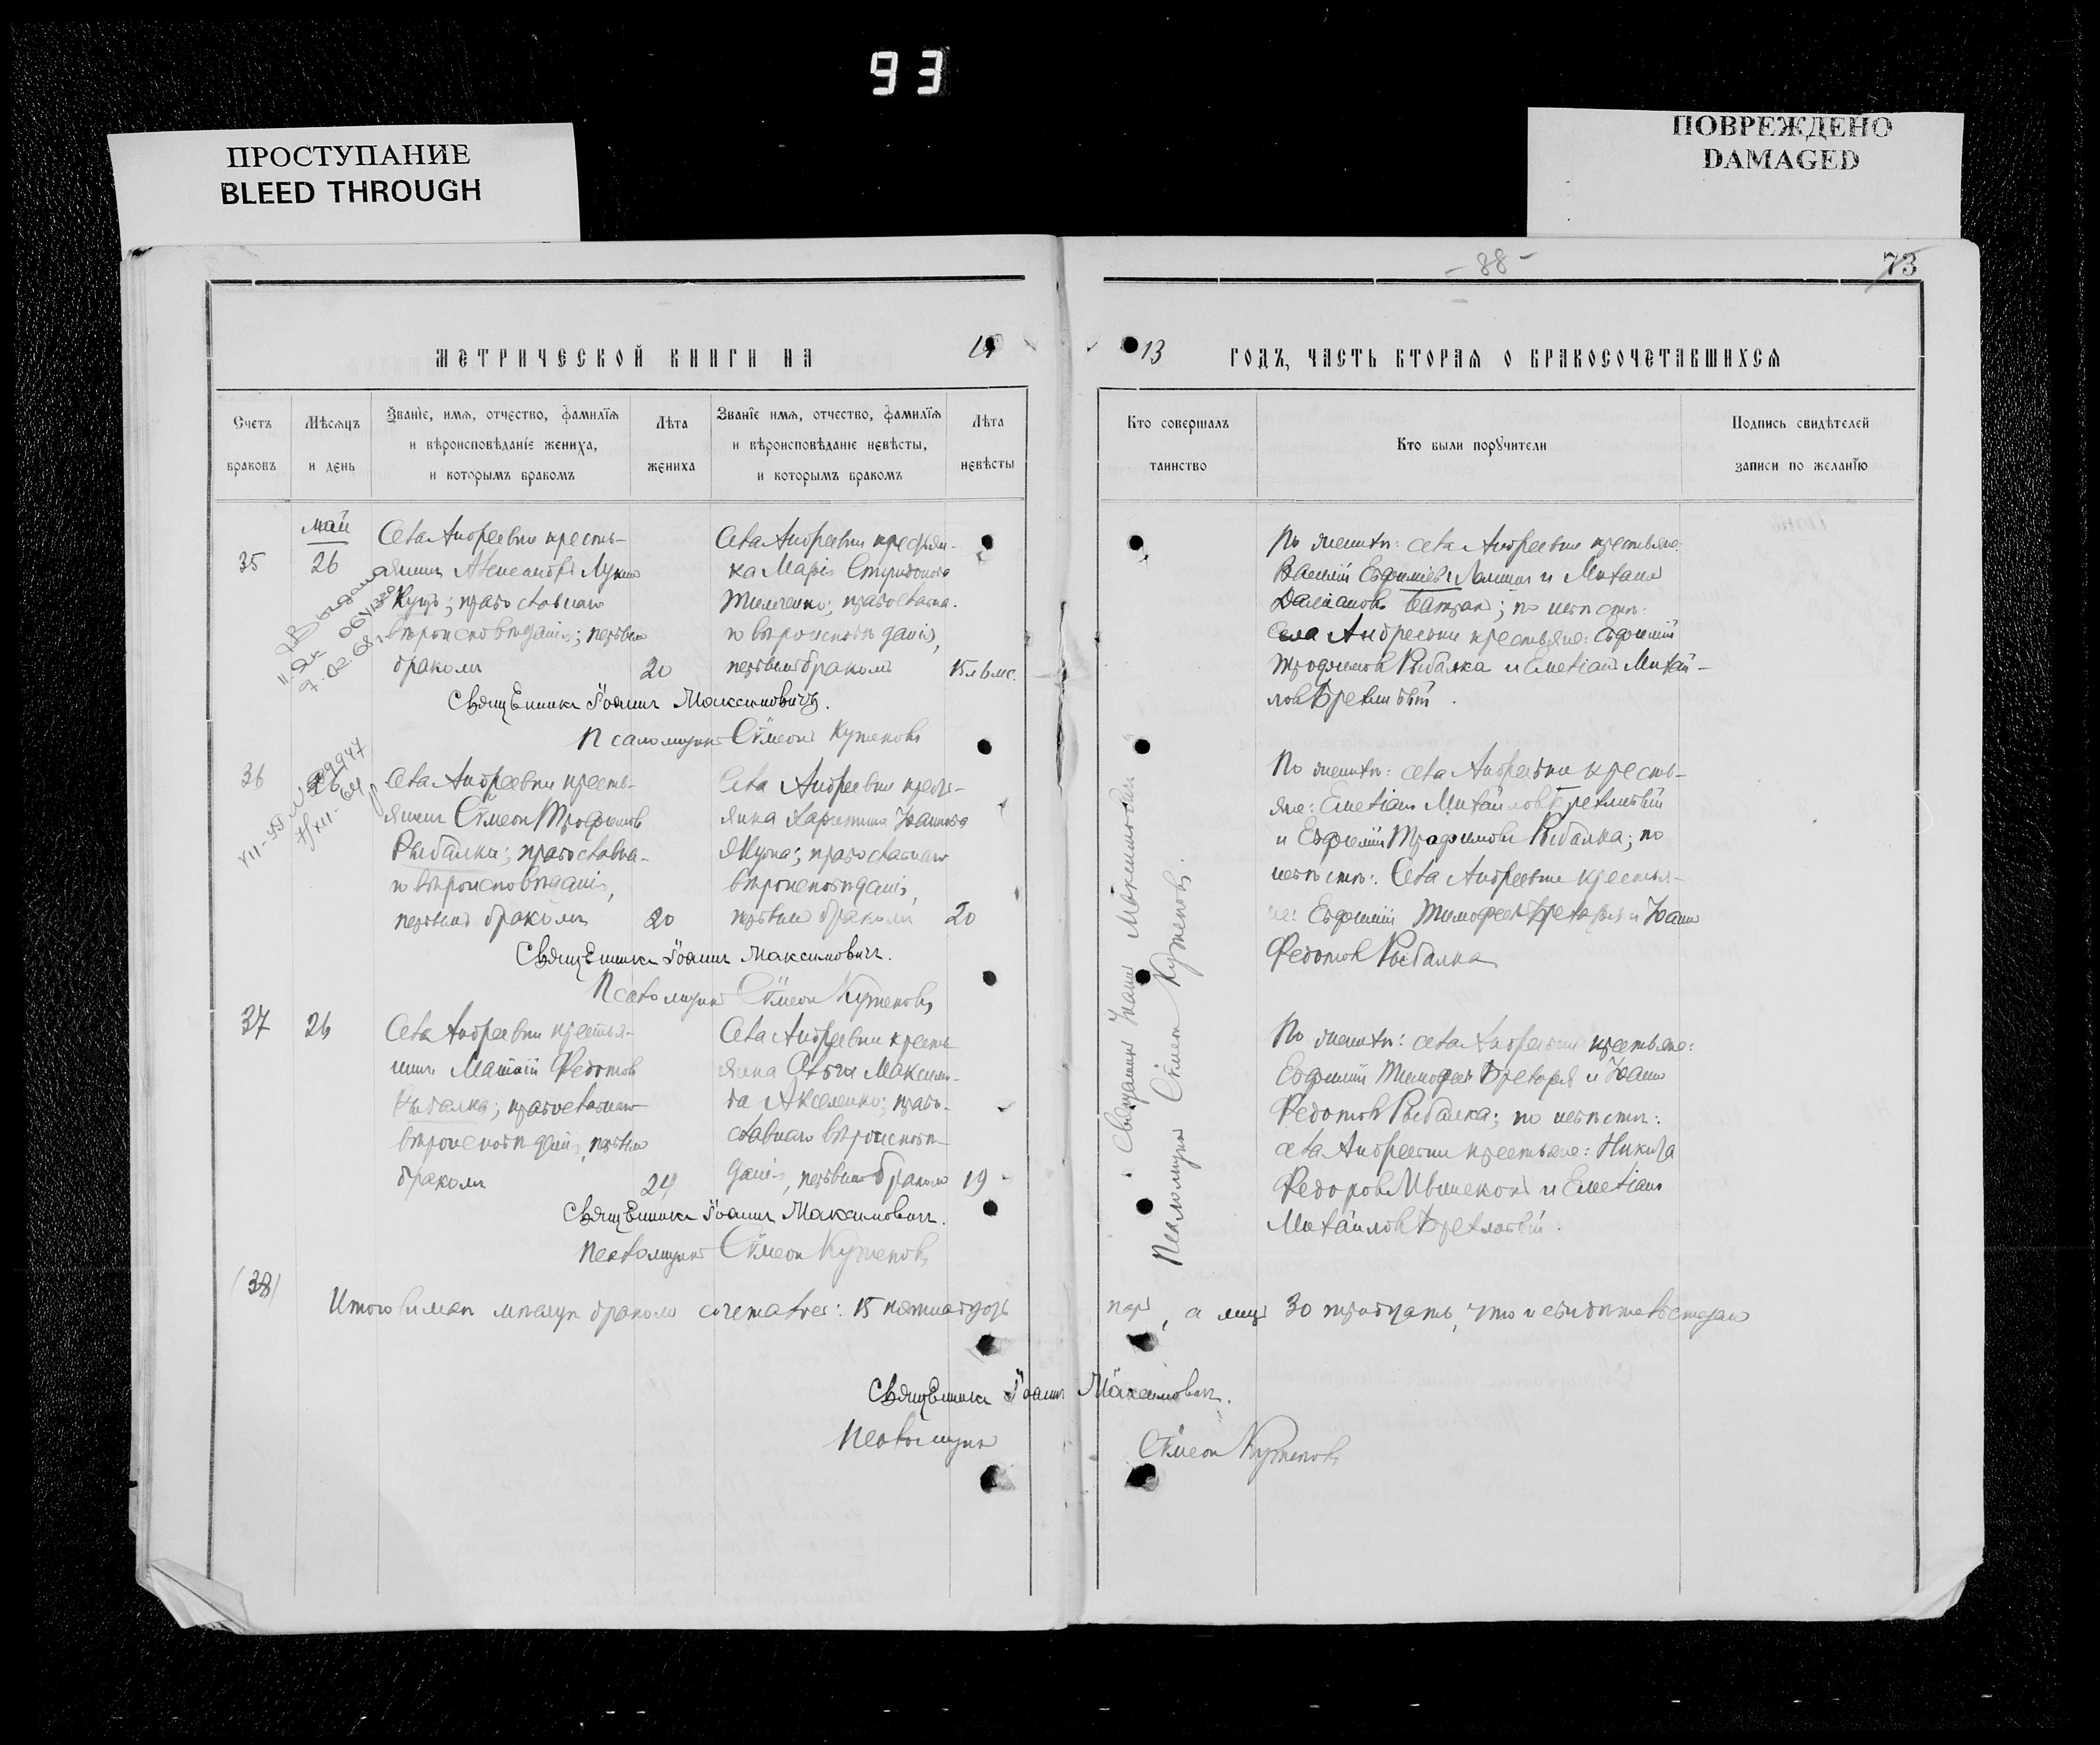 93
ПРОСТУПАНИЕ
BLEED THROUGH
ПОВРЕЖДЕНО
DAMAGED
- 88 -
73
МЕТРИЧЕСКОЙ КНИГИ НА 19
13 ГОДЪ, ЧАСТЬ ВТОРАЯ О БРАКОСОЧЕТАВШИХСЯ
Счетъ браковъ
Мѣсяцъ и день
Званіе, имя, отчество, фамилія и вѣроисповѣданіе жениха, и которымъ бракомъ
Лѣта жениха
Званіе имя, отчество, фамилія и вѣроисповѣданіе невѣсты, и которымъ бракомъ
Лѣта невѣсты
Кто совершалъ таинство
Кто были поручители
Подпись свидѣтелей записи по желанію
Май
35
26
Села Андреевки кресть-
янинъ Александръ Лукинъ
Куцъ; православнаго
вѣроисповѣданія; первымъ
бракомъ
20
Села Андреевки крестьян-
ка Марія Спиридонова
Тимченко; православна-
го вѣроисповѣданія,
первымъ бракомъ
Священникъ Іоаннъ Максимовичъ.
Псаломщикъ Сѵмеонъ Кутеповъ
По женихѣ: села Андреевки крестьяне:
Василій Евфиміевъ и Михаилъ
Батракъ; по невѣстѣ:
села Андреевки крестьяне: Евфимій
Трофимовъ Рыбалка и Емеліанъ Михай-
ловъ
36
26
Села Андреевки кресть-
янинъ Сѵмеонъ Трофимовъ
Рыбалка; православна-
го вѣроисповѣданія,
первымъ бракомъ
20
Села Андреевки кресть-
янка Харитина Іоаннова
православнаго
вѣроисповѣданія,
первымъ бракомъ
20
Священникъ Іоаннъ Максимовичъ.
Псаломщикъ Сѵмеонъ Кутеповъ
По женихѣ: села Андреевки кресть-
яне: Емеліанъ Михайловъ
и Евфимій Трофимовъ Рыбалка; по
невѣстѣ: Села Андреевки крестья-
не: Евфимій Тимофеевъ и Іоаннъ
Федотовъ Рыбалка
37
26
Села Андреевки крестья-
нинъ Матѳій Федотовъ
Рыбалка; православнаго
вѣроисповѣданія, первымъ
бракомъ
24
Села Андреевки кресть-
янка Ольга Максимо-
ва право-
славнаго вѣроисповѣ-
данія, первымъ бракомъ
19
Священникъ Іоаннъ Максимовичъ.
Псаломщикъ Сѵмеонъ Кутеповъ
По женихѣ: села Андреевки крестьяне:
Евфимій Тимофеевъ и Іоаннъ
Федотовъ Рыбалка; по невѣстѣ:
села Андреевки крестьяне: Никита
Федоровъ и Емеліанъ
Михайловъ
Священникъ Іоаннъ Максимовичъ
Псаломщикъ Сѵмеонъ Кутеповъ.
(38)
Итого въ маѣ мѣсяцѣ бракомъ сочеталось: 15 пятнадцать паръ, а лицъ 30 тридцать, что и свидѣтельствуемъ
Священникъ Іоаннъ Максимовичъ.
Псаломщикъ Сѵмеонъ Кутеповъ